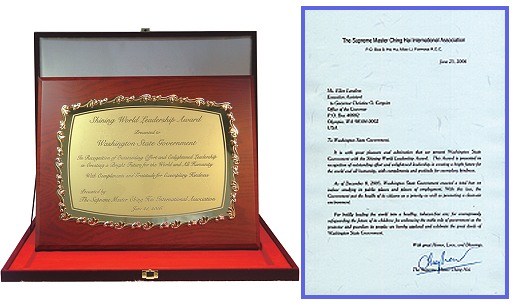 Shining World Leadership Award
Presented to
Washington State Government
In Recognition of Outstanding Effort and Enlightened Leadership
in Creating a Bright Future for the World and All Humanity
With Compliments and Gratitude for Exemplary Kindness
Presented by
The Supreme Master Ching Hai International Association
June 21, 2006
The Supreme Master Ching Hai International Association
P.O. Box 9, Hsi Hu, Miao Li, Formosa R.O.C.
June 21, 2006
Ms. Ellen Landino
Executive Assistant
to Governor Christine O. Gregoire
Office of the Governor
P.O. Box 40002
Olympia, WA 98504-0002
USA
To Washington State Government:
It is with great pleasure and admiration that we present Washington State
Government with the Shining World Leadership Award. This Award is presented in
recognition of outstanding effort and enlightened leadership in creating a bright future for
the world and all humanity, with compliments and gratitude for exemplary kindness.
As of December 8, 2005, Washington State Government enacted a total ban on
indoor smoking in public places and places of employment. With this law, the
Government put the health of its citizens as a priority as well as promoting a cleaner
environment.
For boldly leading the world into a healthy, tobacco-free era; for courageously
safeguarding the future of its children; for embracing the noble role of government as the
protector and guardian to people we hereby applaud and celebrate the great deeds of
Washington State Government.
With great Honor, Love, and Blessings,
The Supreme Master Ching Hai